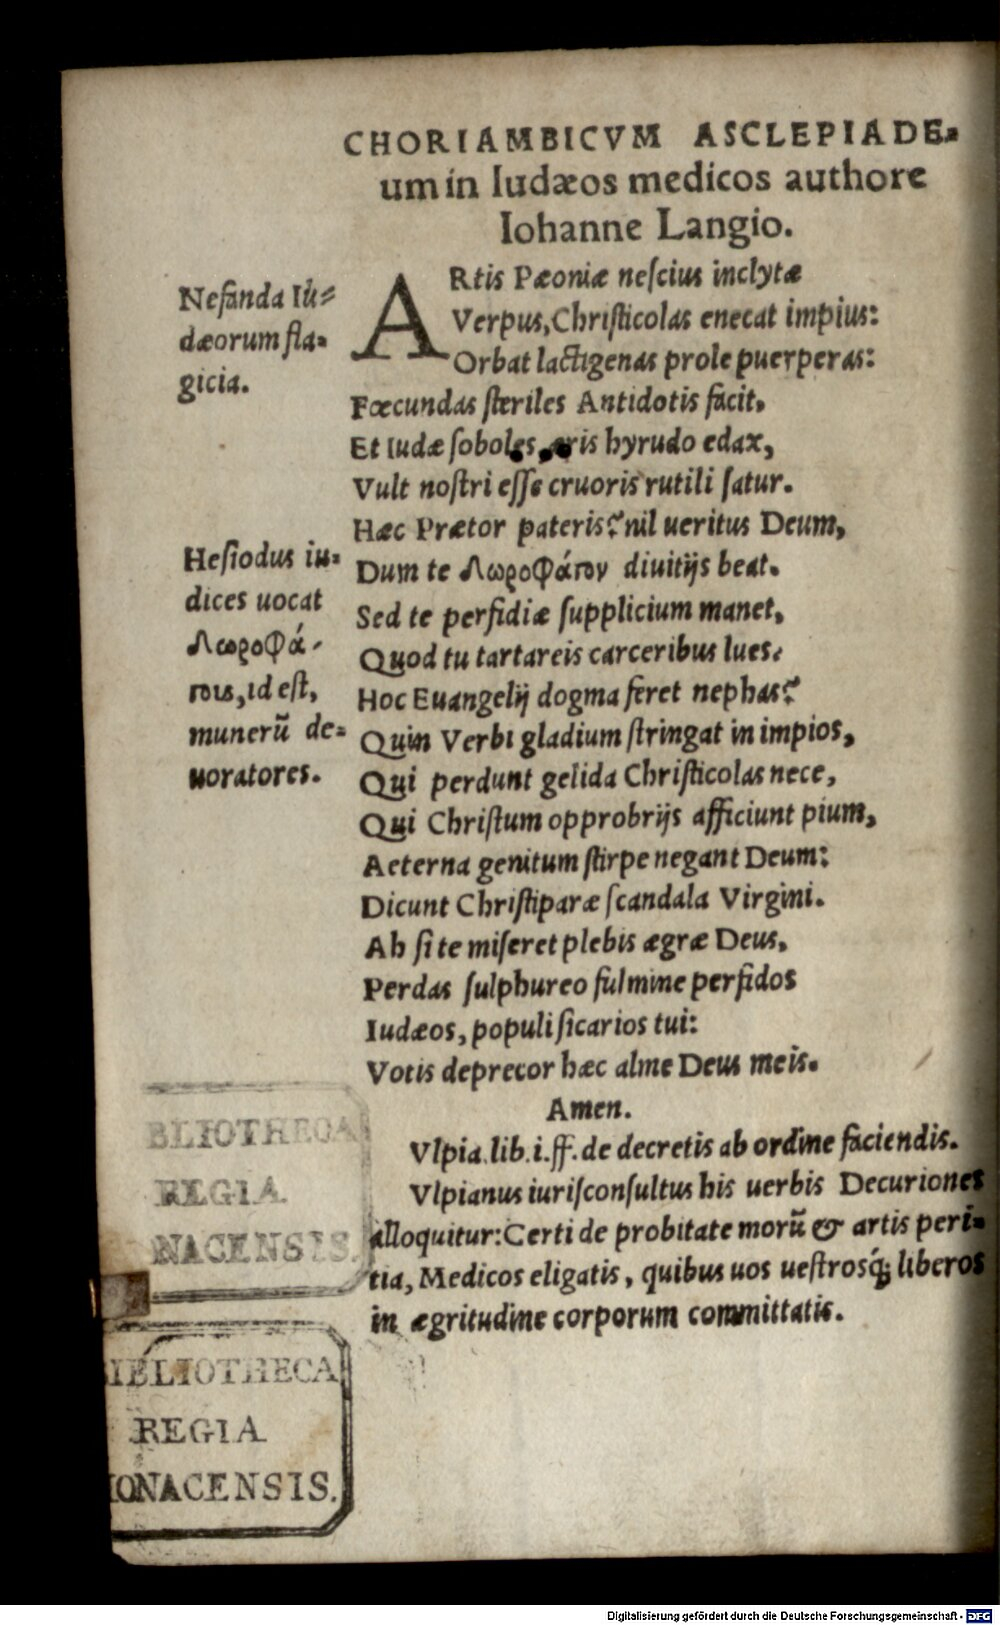 CHORIAMBICVM ASCLEPIADE-
um in Iudæos medicos authore
Iohanne Langio.
Nefanda Iu-
dæorum fla-
gicia.
ARtis Pæoniæ neſcius inclytæ
Verpus, Chriſticolas enecat impius:
Orbat lactigenas prole puerperas:
Fœcundas ſteriles Antidotis facit,
Et Iudæ ſoboles, æris hyrudo edax,
Vult noſtri eſſe cruoris rutili ſatur.
Hæc Prætor pateris? nil ueritus Deum,
Heſiodus iu-
dices uocat
Δωροφά-
γους, id eſt,
munerũ de-
uoratores.
Dum te Δωροφάγον diuitijs beat.
Sed te perfidiæ ſupplicium manet,
Quod tu tartareis carceribus lues.
Hoc Euangelij dogma feret nephas?
Quin Verbi gladium ſtringat in impios,
Qui perdunt gelida Chriſticolas nece,
Qui Chriſtum opprobrijs afficiunt pium,
Aeterna genitum ſtirpe negant Deum:
Dicunt Chriſtiparæ ſcandala Virgini.
Ah ſi te miſeret plebis ægræ Deus,
Perdas ſulphureo fulmine perfidos
Iudæos, populi ſicarios tui:
Votis deprecor hæc alme Deus meis.
Amen.
Vlpia. lib. i. ff. de decretis ab ordine faciendis.
Vlpianus iuriſconſultus his uerbis Decuriones
alloquitur: Certi de probitate morũ & artis peri-
tia, Medicos eligatis, quibus uos ueſtrosq́; liberos
in ægritudine corporum committatis.
BLIOTHECA
REGIA
NACENSIS.
IBLIOTHECA
REGIA
ONACENSIS.
Digitalisierung gefördert durch die Deutsche Forschungsgemeinschaft - DFG